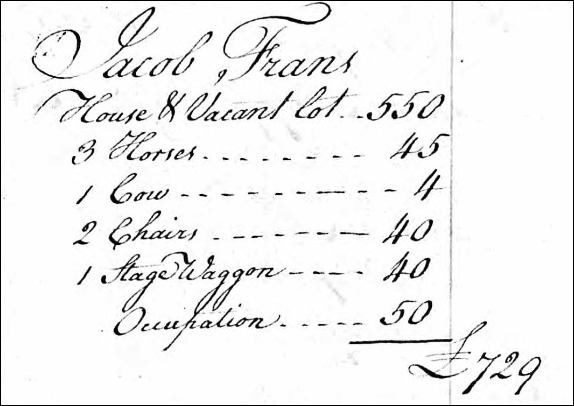 Jacob Frans
House & Vacant lot .. 550
3 Horses ........ 45
1 Cow -------- 4
2 Chairs ------- 40
1 Stage Waggon ---- 40
Occupation ..... 50
£729